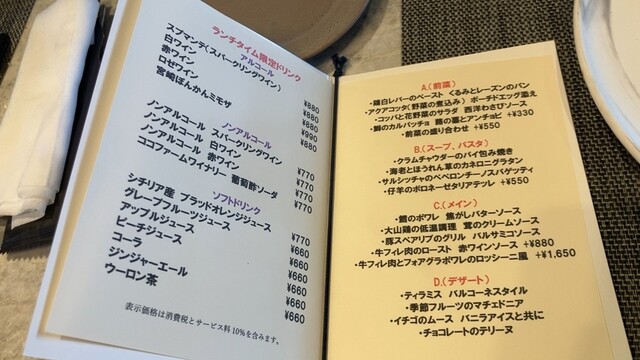 ランチタイム限定ドリンク
アルコール
スプマンテ(スパークリングワイン) ¥880
白ワイン ¥880
赤ワイン ¥880
ロゼワイン ¥990
宮崎ぽんかんミモザ ¥880
ノンアルコール
ノンアルコール スパークリングワイン ¥770
ノンアルコール 白ワイン ¥770
ノンアルコール 赤ワイン ¥770
ココファームワイナリー 葡萄酢ソーダ ¥770
ソフトドリンク
シチリア産 ブラッドオレンジジュース ¥770
グレープフルーツジュース ¥660
アップルジュース ¥660
ピーチジュース ¥660
コーラ ¥660
ジンジャーエール ¥660
ウーロン茶 ¥660
表示価格は消費税とサービス料10%を含みます。
A.(前菜)
・鶏白レバーのペースト くるみとレーズンのパン
・アクアコッタ(野菜の煮込み) ポーチドエッグ添え
・コッパと花野菜のサラダ 西洋わさびソース
・鰤のカルパッチョ 蕪の薹とアンチョビ +¥330
・前菜の盛り合わせ +¥550
B.(スープ、パスタ)
・クラムチャウダーのパイ包み焼き
・海老とほうれん草のカネロニグラタン
・サルシッチャのペペロンチーノスパゲッティ
・仔羊のボロネーゼタリアテレ +¥550
C.(メイン)
・鱈のポワレ 焦がしバターソース
・大山鶏の低温調理 茸のクリームソース
・豚スペアリブのグリル バルサミコソース
・牛フィレ肉のロースト 赤ワインソース +¥880
・牛フィレ肉とフォアグラポワレのロッシーニ風 +¥1,650
D.(デザート)
・ティラミス バルコーネスタイル
・季節フルーツのマチェドニア
・イチゴのムース バニラアイスと共に
・チョコレートのテリーヌ